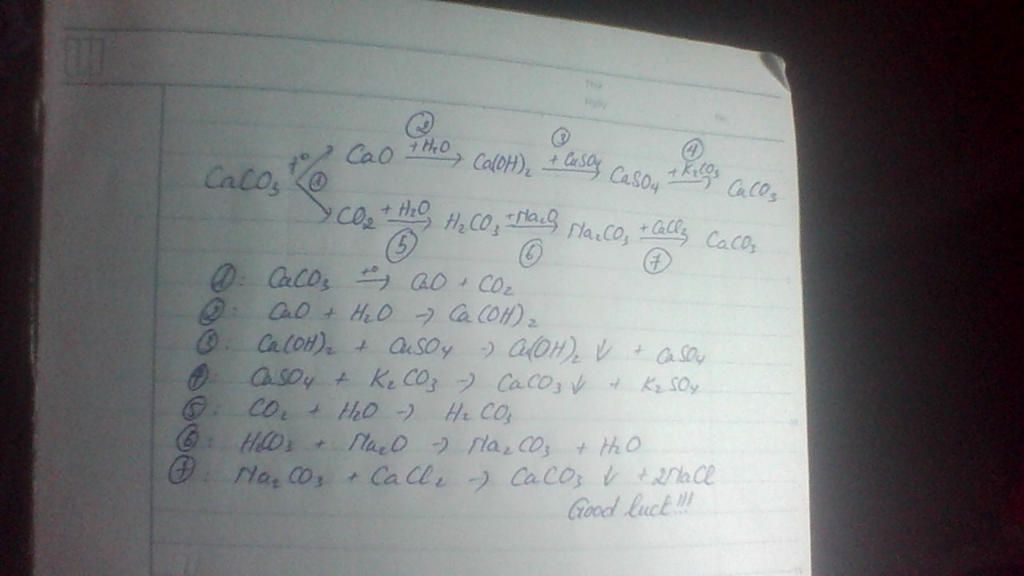 ② ③ ④
CaCO₃ t° ① CaO +H₂O → Ca(OH)₂ +CuSO₄ → CaSO₄ +K₂CO₃ → CaCO₃
CO₂ +H₂O → H₂CO₃ +Na₂O → Na₂CO₃ +CaCl₂ → CaCO₃
⑤ ⑥ ⑦
①: CaCO₃ t° → CaO + CO₂
②: CaO + H₂O → Ca(OH)₂
③: Ca(OH)₂ + CuSO₄ → Cu(OH)₂ ↓ + CaSO₄
④: CaSO₄ + K₂CO₃ → CaCO₃ ↓ + K₂SO₄
⑤: CO₂ + H₂O → H₂CO₃
⑥: H₂CO₃ + Na₂O → Na₂CO₃ + H₂O
⑦: Na₂CO₃ + CaCl₂ → CaCO₃ ↓ + 2NaCl
Good luck!!!